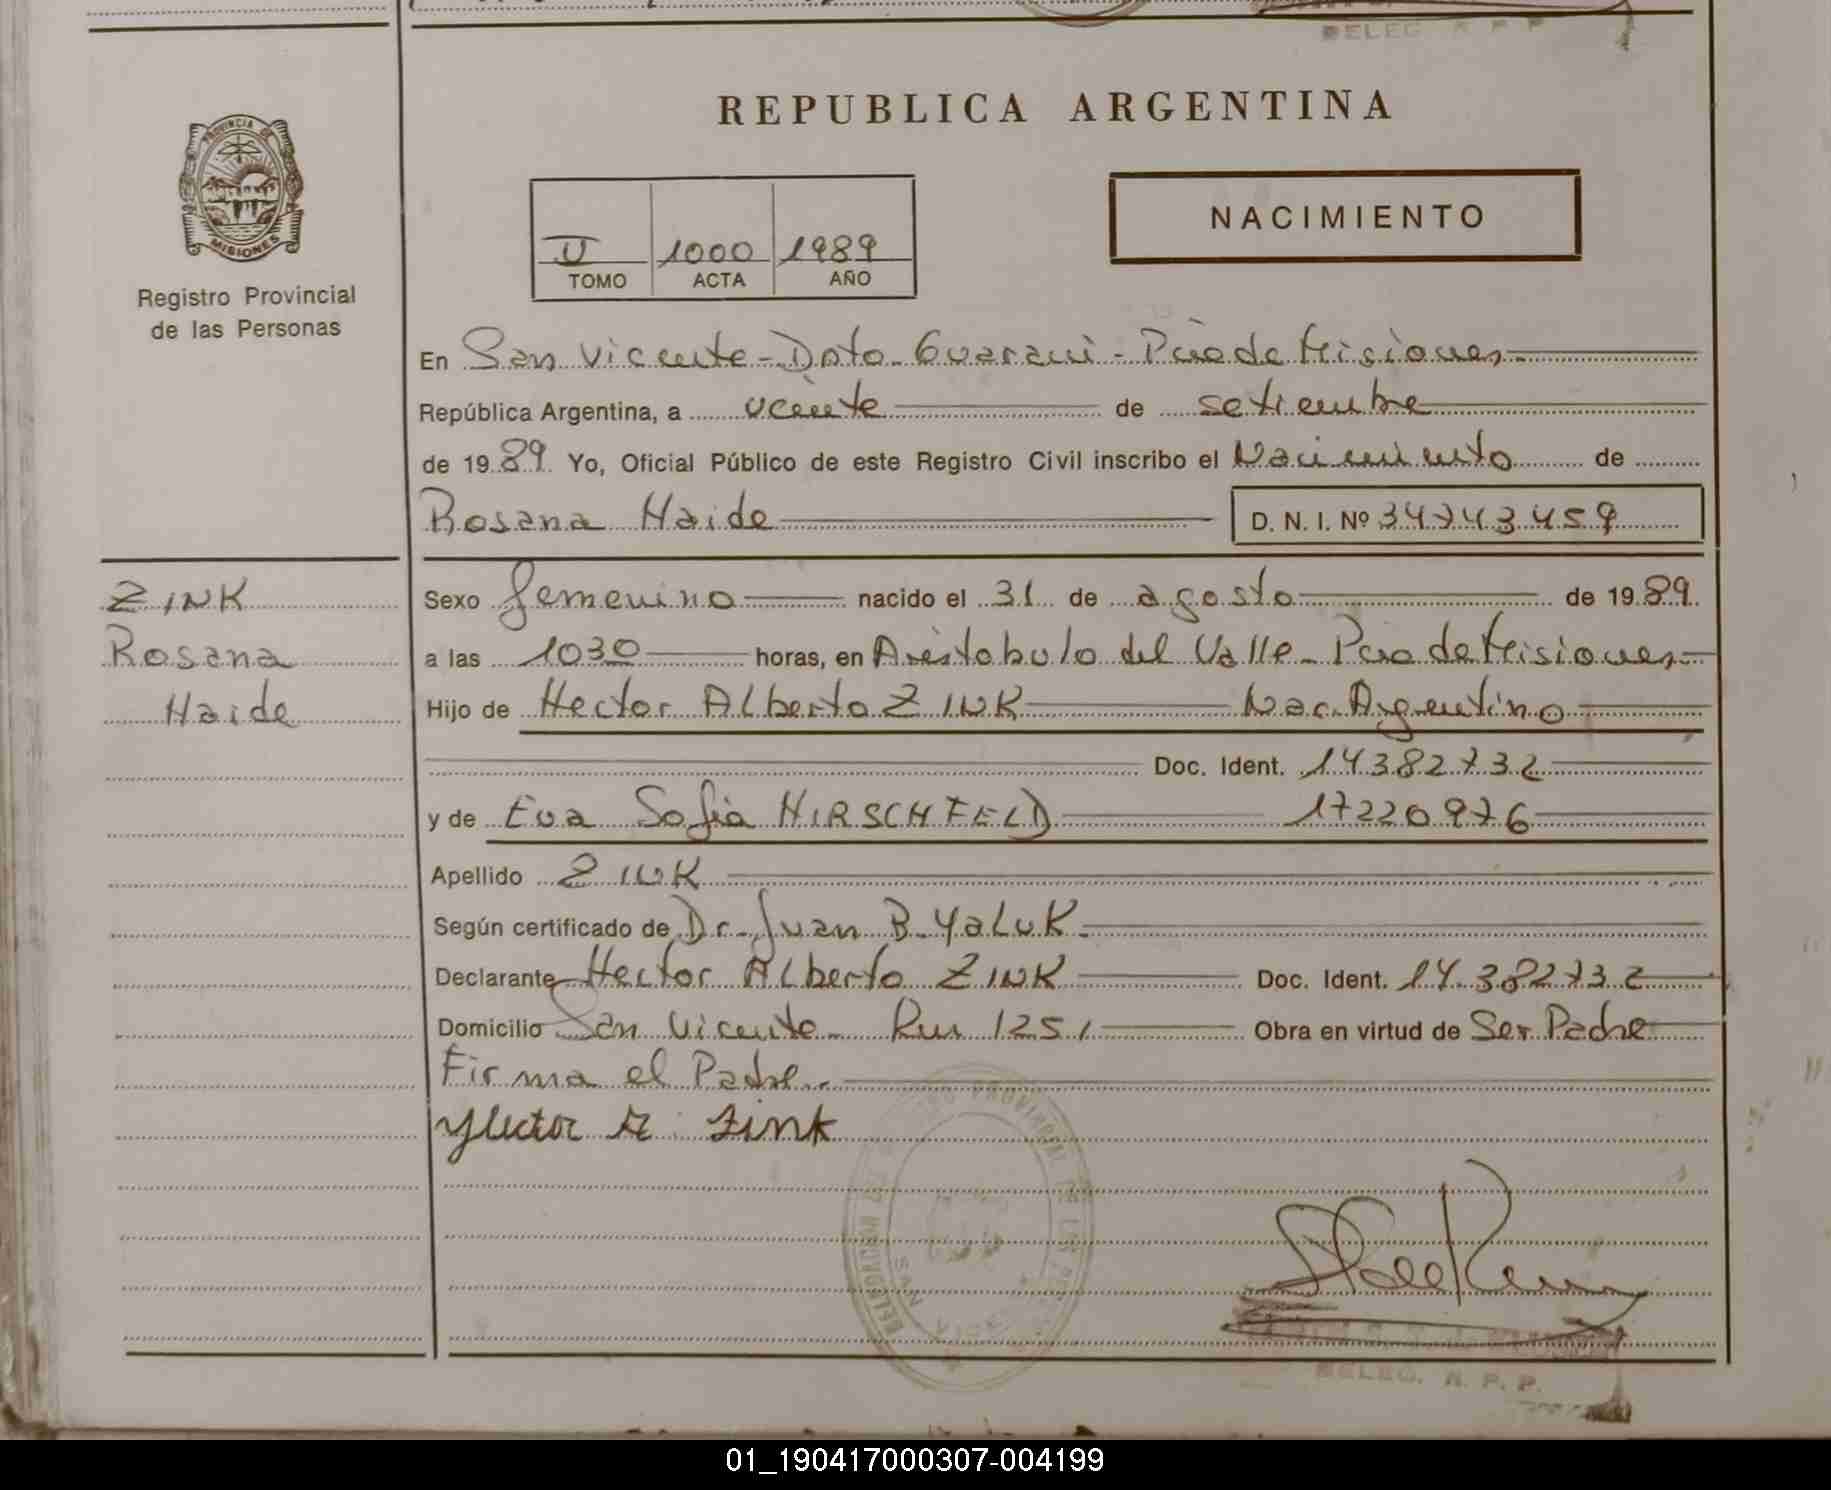 DELEG. R P P
REPUBLICA ARGENTINA
PROVINCIA DE
MISIONES
Registro Provincial
de las Personas
II 1000 1989
TOMO ACTA AÑO
NACIMIENTO
En San Vicente - Dpto. Guarani - Pcia de Misiones
República Argentina, a veinte de setiembre
de 1989 Yo, Oficial Público de este Registro Civil inscribo el Nacimiento de
Rosana Haide D. N. I. Nº 34743459
ZINK
Rosana
Haide
Sexo femenino nacido el 31 de agosto de 1989.
a las 1030 horas, en Aristobulo del Valle - Pcia de Misiones
Hijo de Hector Alberto ZINK Nac. Argentino
Doc. Ident. 14382732
y de Eva Sofia HIRSCHFELD 17220976
Apellido ZINK
Según certificado de Dr. Juan B. YaLuK
Declarante Hector Alberto ZINK Doc. Ident. 14.382732
Domicilio San Vicente Rur 1251 Obra en virtud de Ser Padre
Firma el Padre.
Hector A. Zink
SAN
DELEG. R. P. P.
01_190417000307-004199